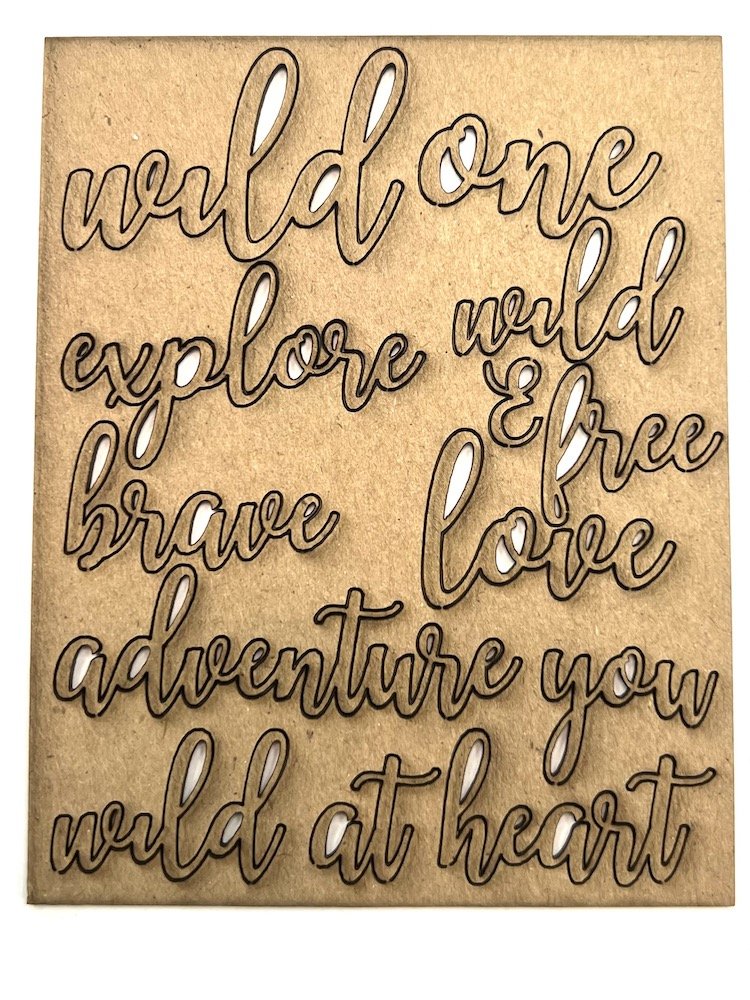 wild one
explore
wild
& free
brave
love
adventure you
wild at heart